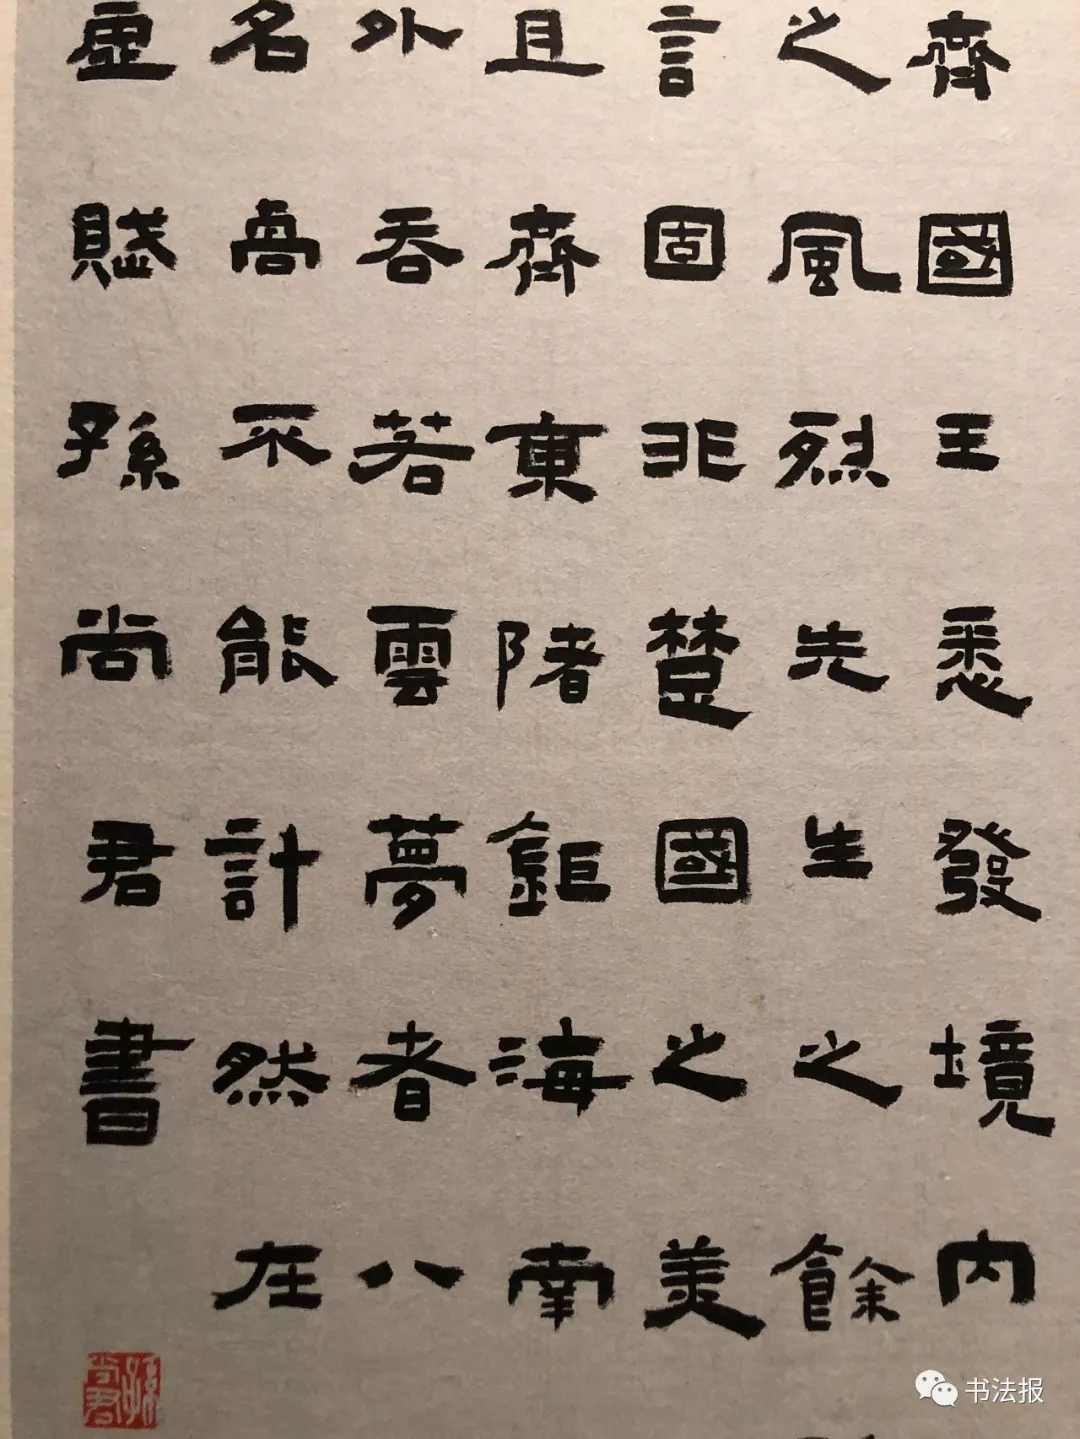 齊國王悉發境內
之風烈先生之餘
言固非楚國之美
且齊東陼鉅海南
外吞若雲夢者八
名卨不能計然在
虛賦孫尚君書
孫尚君
书法报